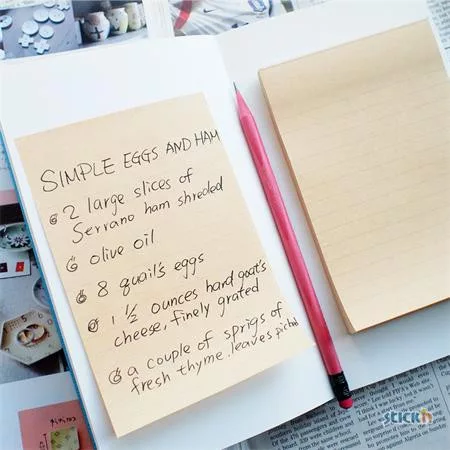 SIMPLE EGGS AND HAM
2 large slices of
Serrano ham shreded
olive oil
8 quail's eggs
1 ½ ounces hard goat's
cheese, finely grated
a couple of sprigs of
fresh thyme. leaves picked
STICK'n